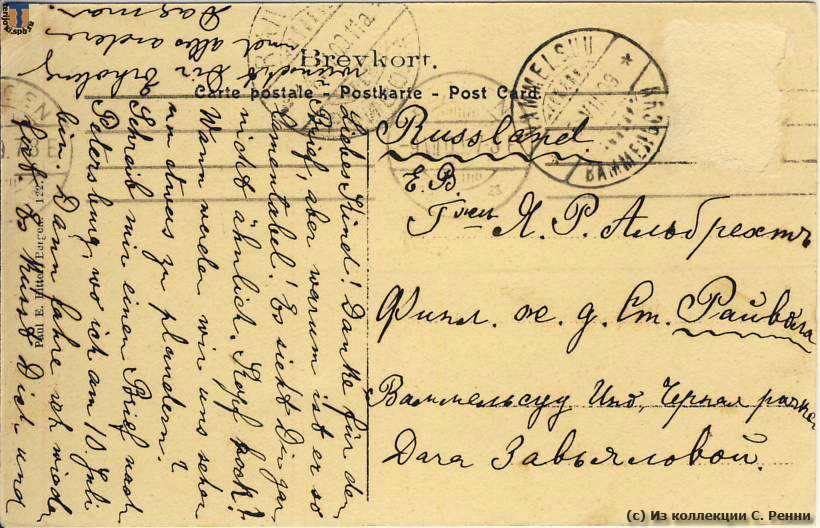 Brevkort.
Carte postale - Postkarte - Post Card.
Russland.
Е. В.
Г-жѣ Я. Р. Альбрехтъ
Финл. ж. д. Ст. Райвола
Ваммельсуу Ино, Черная рѣчка
Дача Завьяловой.
Liebes Kind! Danke für den
Brief, aber warum ist er so
lamentabel! Es sieht Dir gar
nicht ähnlich. Kopf hoch!
Wann werden wir uns sehen
um etwas zu plaudern?
Schreib mir einen Brief nach
Petersburg, wo ich am 10. Juli
bin. Dann fahre ich wieder
fort. Es küsst Dich und
wünscht Dir Erholung
und alles andere
Dagmar.
Paul E. Ritter, Bergen.
VAMMELSUU
(c) Из коллекции С. Ренни
terijoki.spb.ru